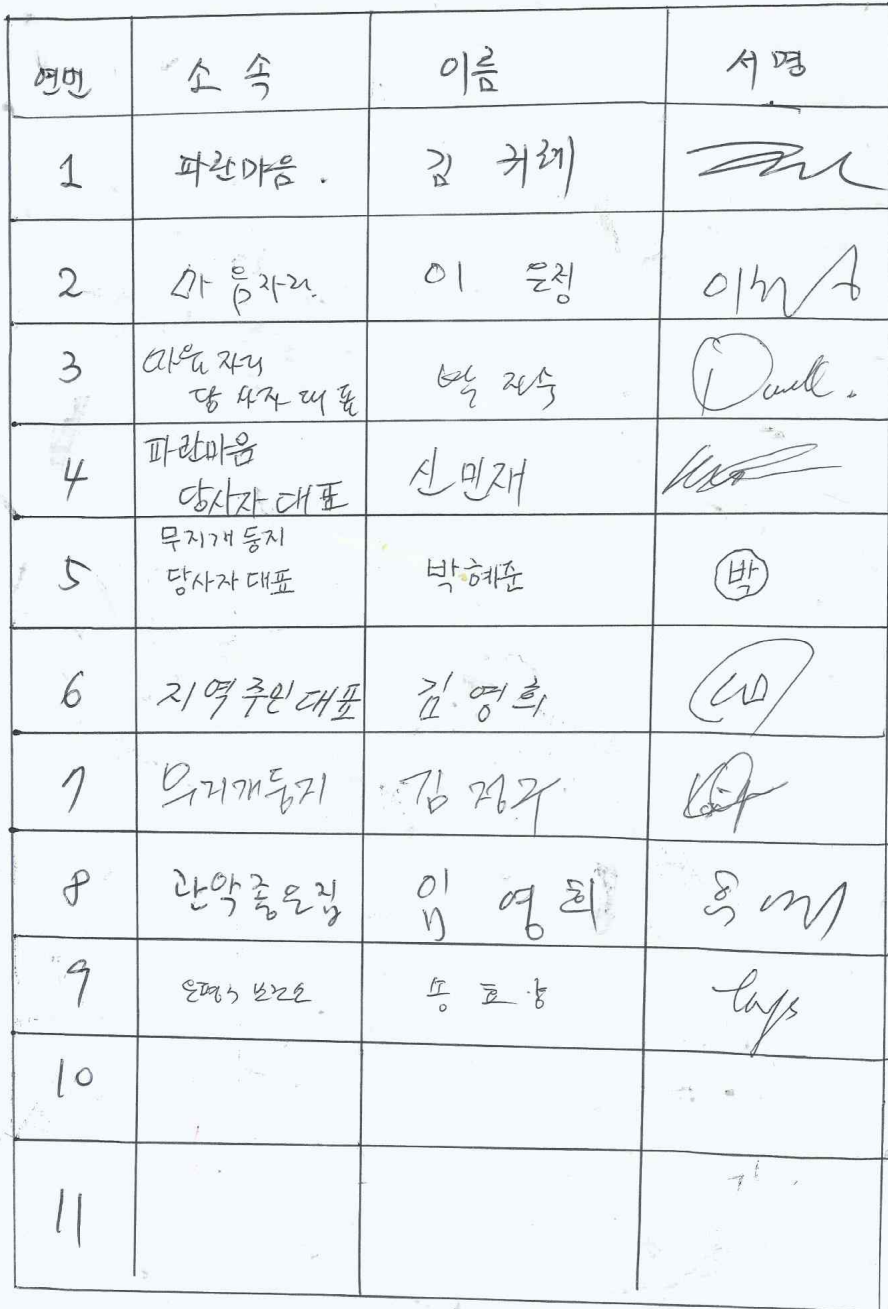 연번 소속 이름 서명
1 파란마음. 김귀례
2 마음자리. 이은정
3 마음자리 당사자대표 박진수
4 파란마음 당사자대표 신민재
5 무지개둥지 당사자대표 박혜준 박
6 지역주민대표 김영희
7 무지개둥지 김정구
8 관악좋은집 임영희
9 은평구보건소
10
11